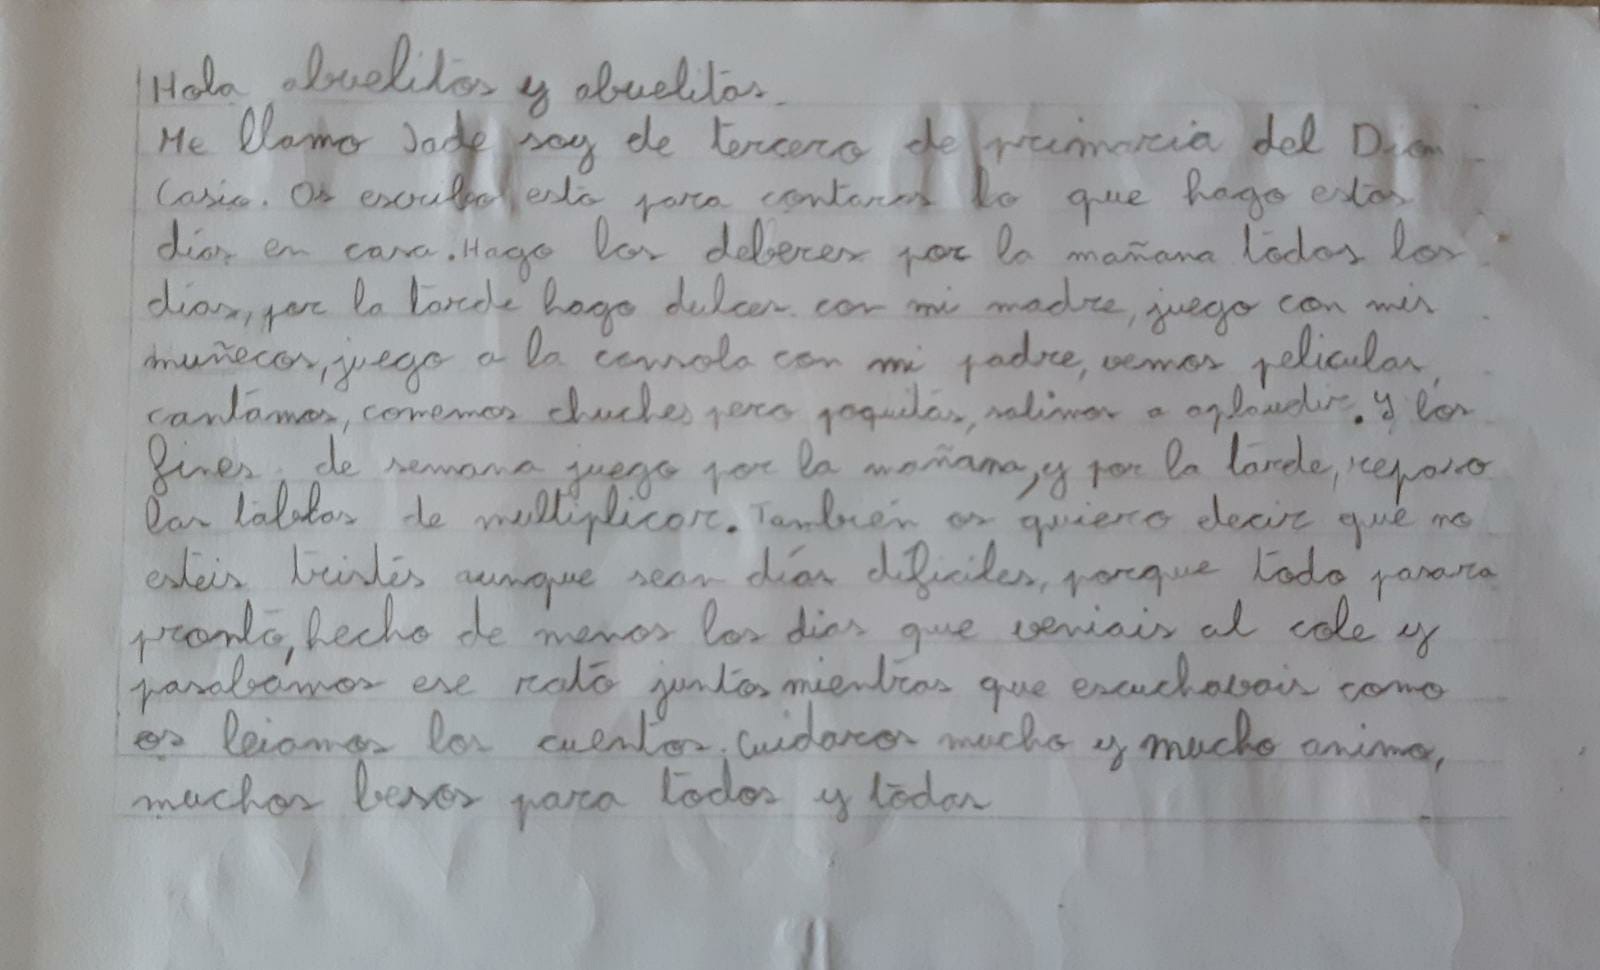 Hola abuelitos y abuelitas.
Me llamo Jade soy de tercero de primaria del Dion
Casio. Os escribo esto para contaros lo que hago estos
días en casa. Hago los deberes por la mañana todos los
días, por la tarde hago dulces con mi madre, juego con mis
muñecos, juego a la consola con mi padre, vemos peliculas,
cantamos, comemos chuches pero poquitas, salimos a aplaudir. Y los
fines de semana juego por la mañana, y por la tarde, repaso
las tablas de multiplicar. También os quiero decir que no
esteis tristes aunque sean días dificiles, porque todo pasara
pronto, hecho de menos los dias que veniais al cole y
pasabamos ese rato juntos mientras que escuchavais como
os leiamos los cuentos. Cuidaros mucho y mucho animo,
muchos besos para todos y todas